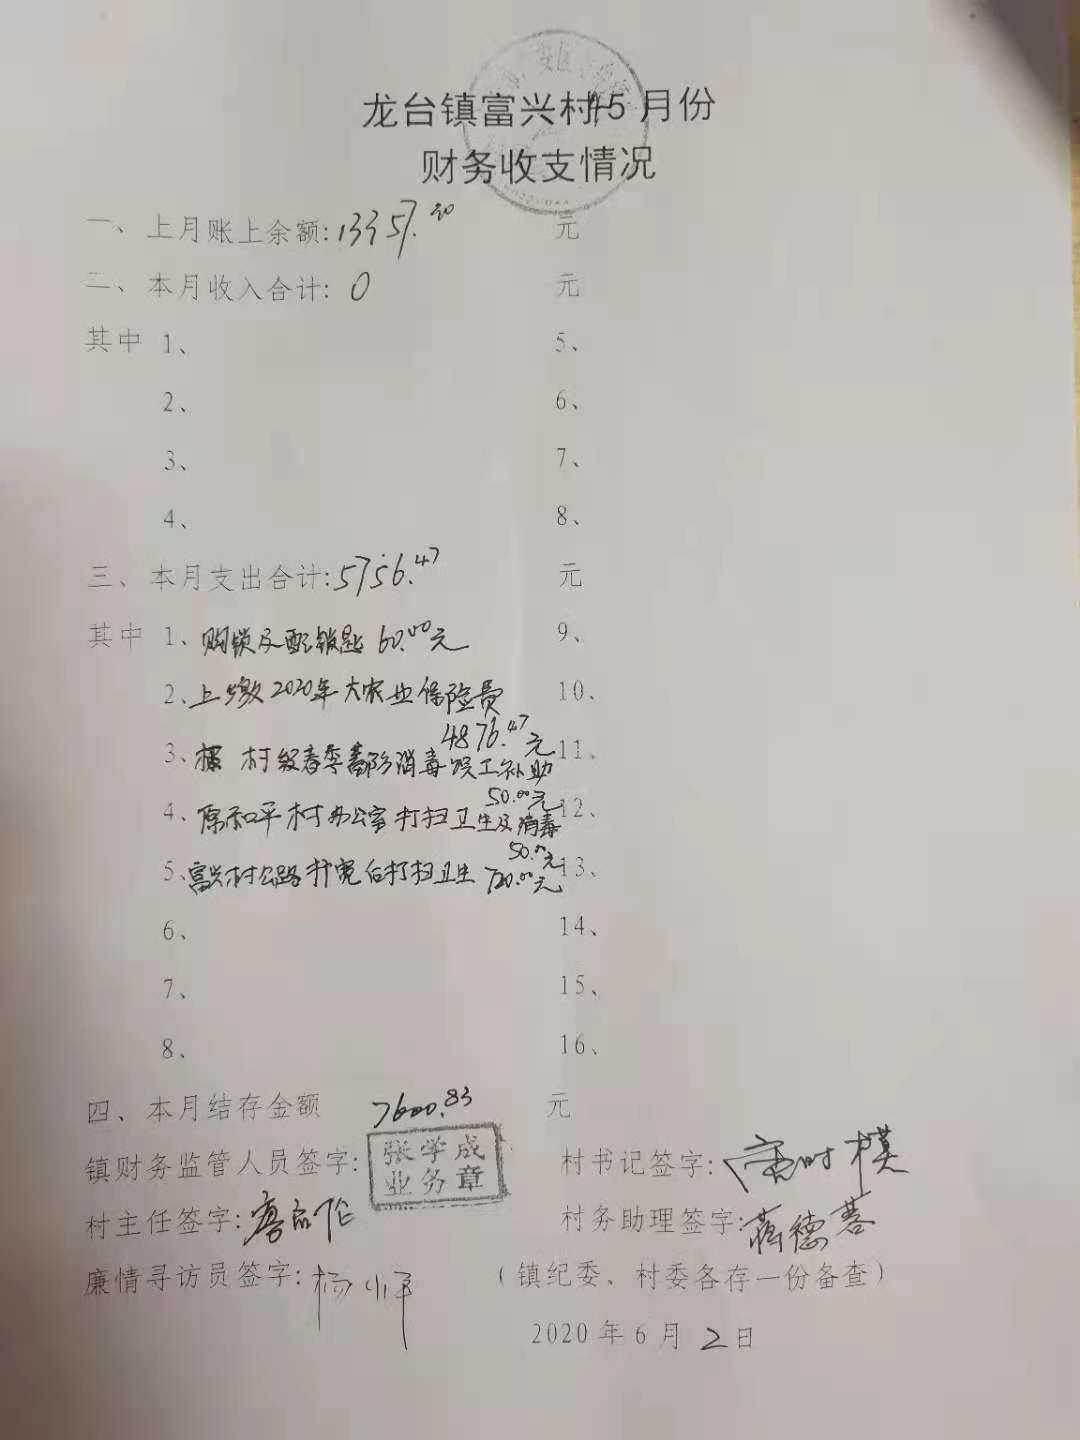 龙台镇富兴村5月份
财务收支情况
一、上月账上余额:13357.30 元
二、本月收入合计: 0 元
其中 1、 5、
2、 6、
3、 7、
4、 8、
三、本月支出合计:5756.47 元
其中 1、购锁及配锁匙 60.00元 9、
2、上缴2020年大农业保险费 10、
4876.47元
3、村级春季畜防消毒误工补助 11、
50.00元
4、原和平村办公室打扫卫生及消毒 12、
50.00元
5、富兴村公路扩宽后打扫卫生 720.00元 13、
6、 14、
7、 15、
8、 16、
四、本月结存金额 7600.83 元
张学成
业务章
镇财务监管人员签字: 村书记签字:
村主任签字: 村务助理签字:
廉情寻访员签字: 杨 （镇纪委、村委各存一份备查）
2020年6月2日